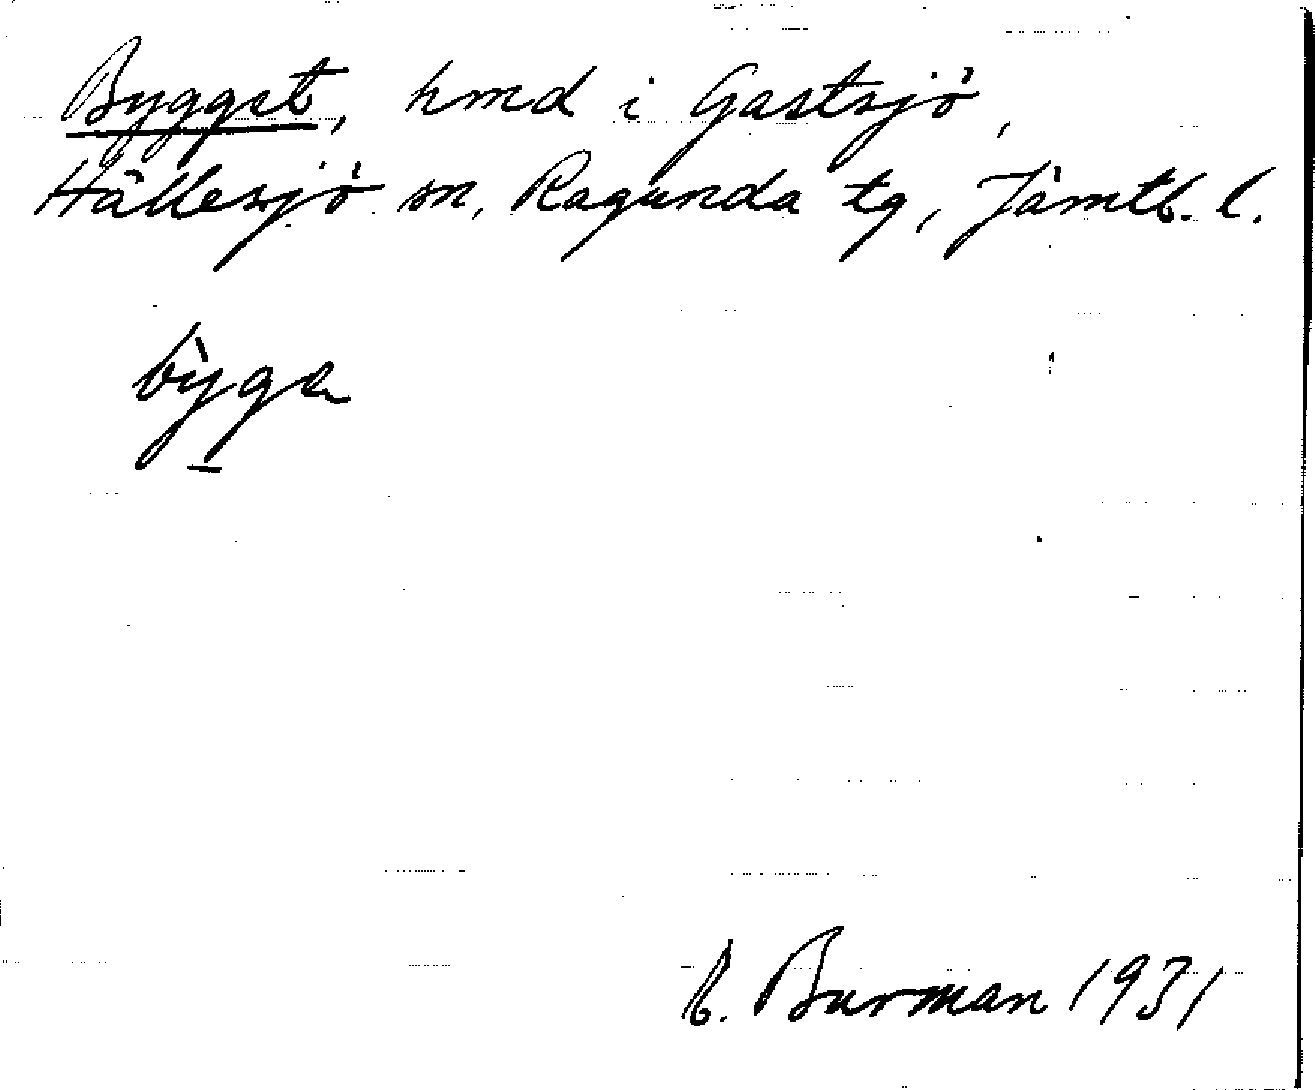 Bygget, hmd i Gastsjö,
Hällesjö sn, Ragunda tg, Jämtl. l.
bỳga
B. Burman 1931